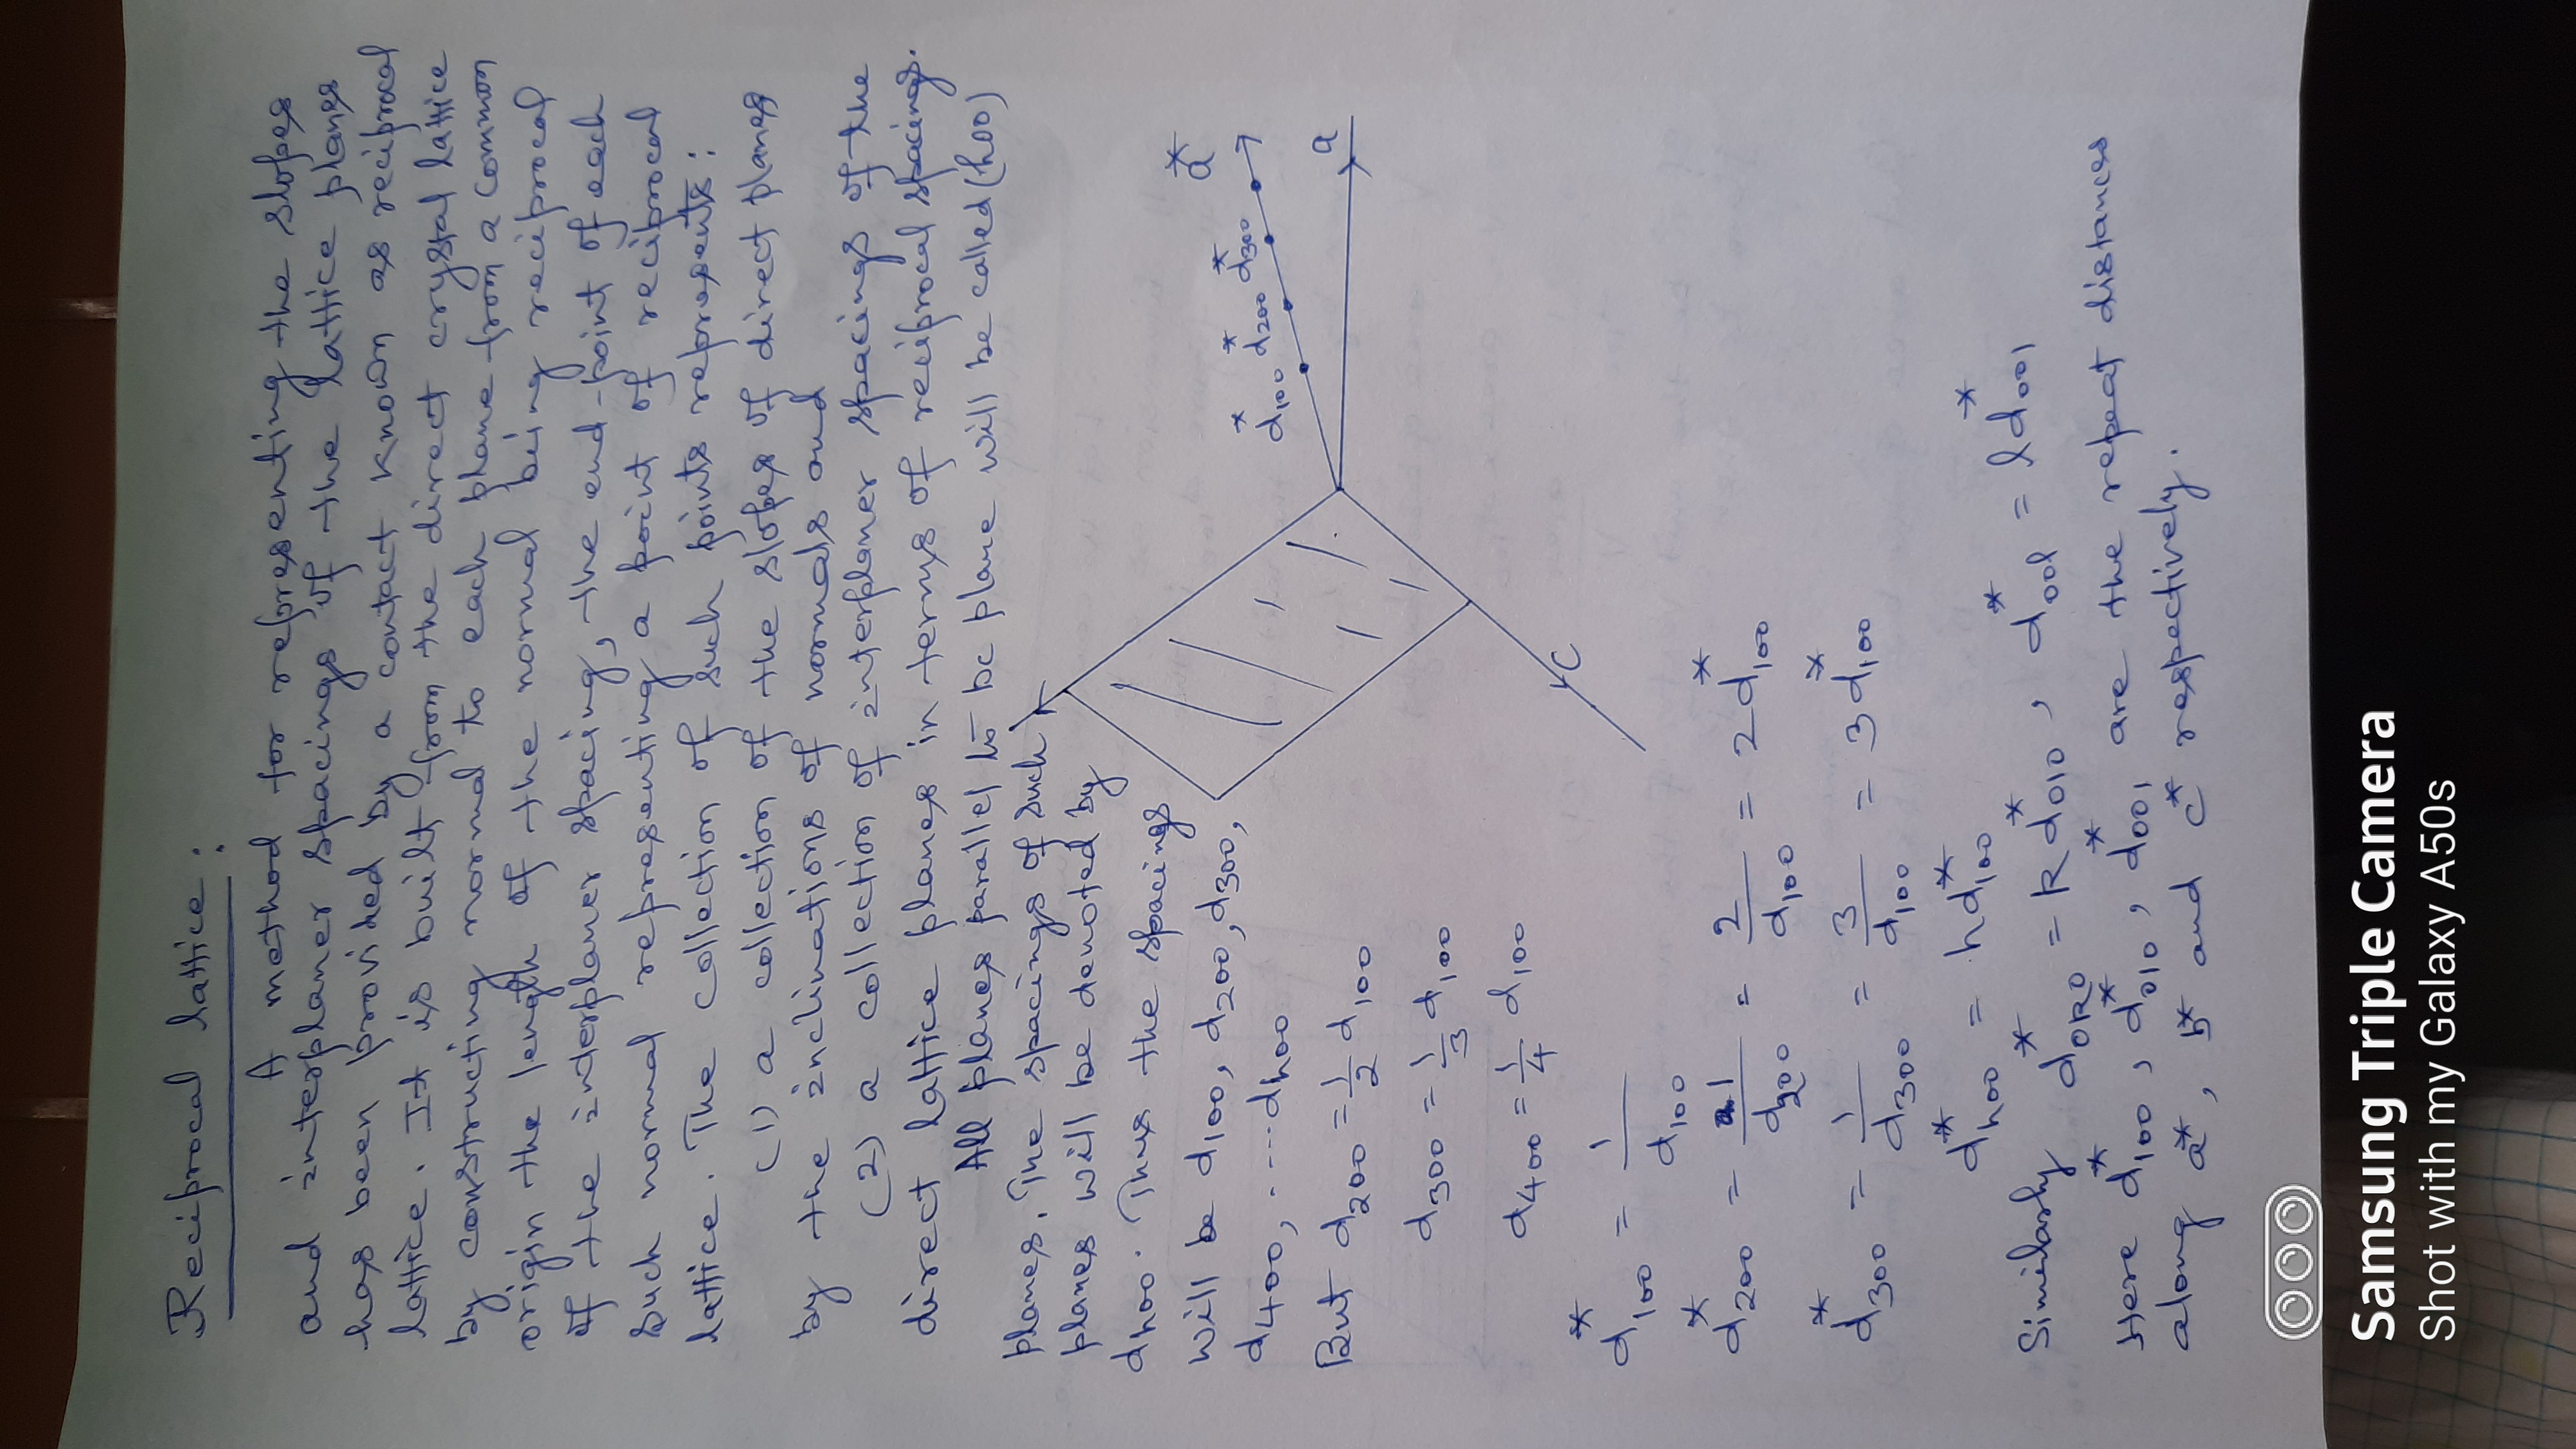 Reciprocal lattice :
A method for representing the slopes
and interplaner spacings of the lattice planes
has been provided by a contact known as reciprocal
lattice. It is built from the direct crystal lattice
by constructing normal to each plane from a common
origin the length of the normal being reciprocal
of the interplaner spacing, the end-point of each
such normal representing a point of reciprocal
lattice. The collection of such points represents:
(1) a collection of the slopes of direct planes
by the inclinations of normals and
(2) a collection of interplaner spacings of the
direct lattice planes in terms of reciprocal spacings.
All planes parallel to bc plane will be called (h00)
planes. The spacings of such
planes will be denoted by
dh00. Thus the spacings
will be d100, d200, d300,
d400, .....dh00
a*
d*100 d*200 d*300
a
c
But d200 = 1/2 d100
d300 = 1/3 d100
d400 = 1/4 d100
d*100 = 1/d100
d*200 = 1/d200 = 2/d100 = 2d*100
d*300 = 1/d300 = 3/d100 = 3d*100
d*h00 = hd*100
Similarly d*0k0 = kd*010, d*00l = ld*001
Here d*100, d*010, d*001 are the repeat distances
along a*, b* and c* respectively.
Samsung Triple Camera
Shot with my Galaxy A50s